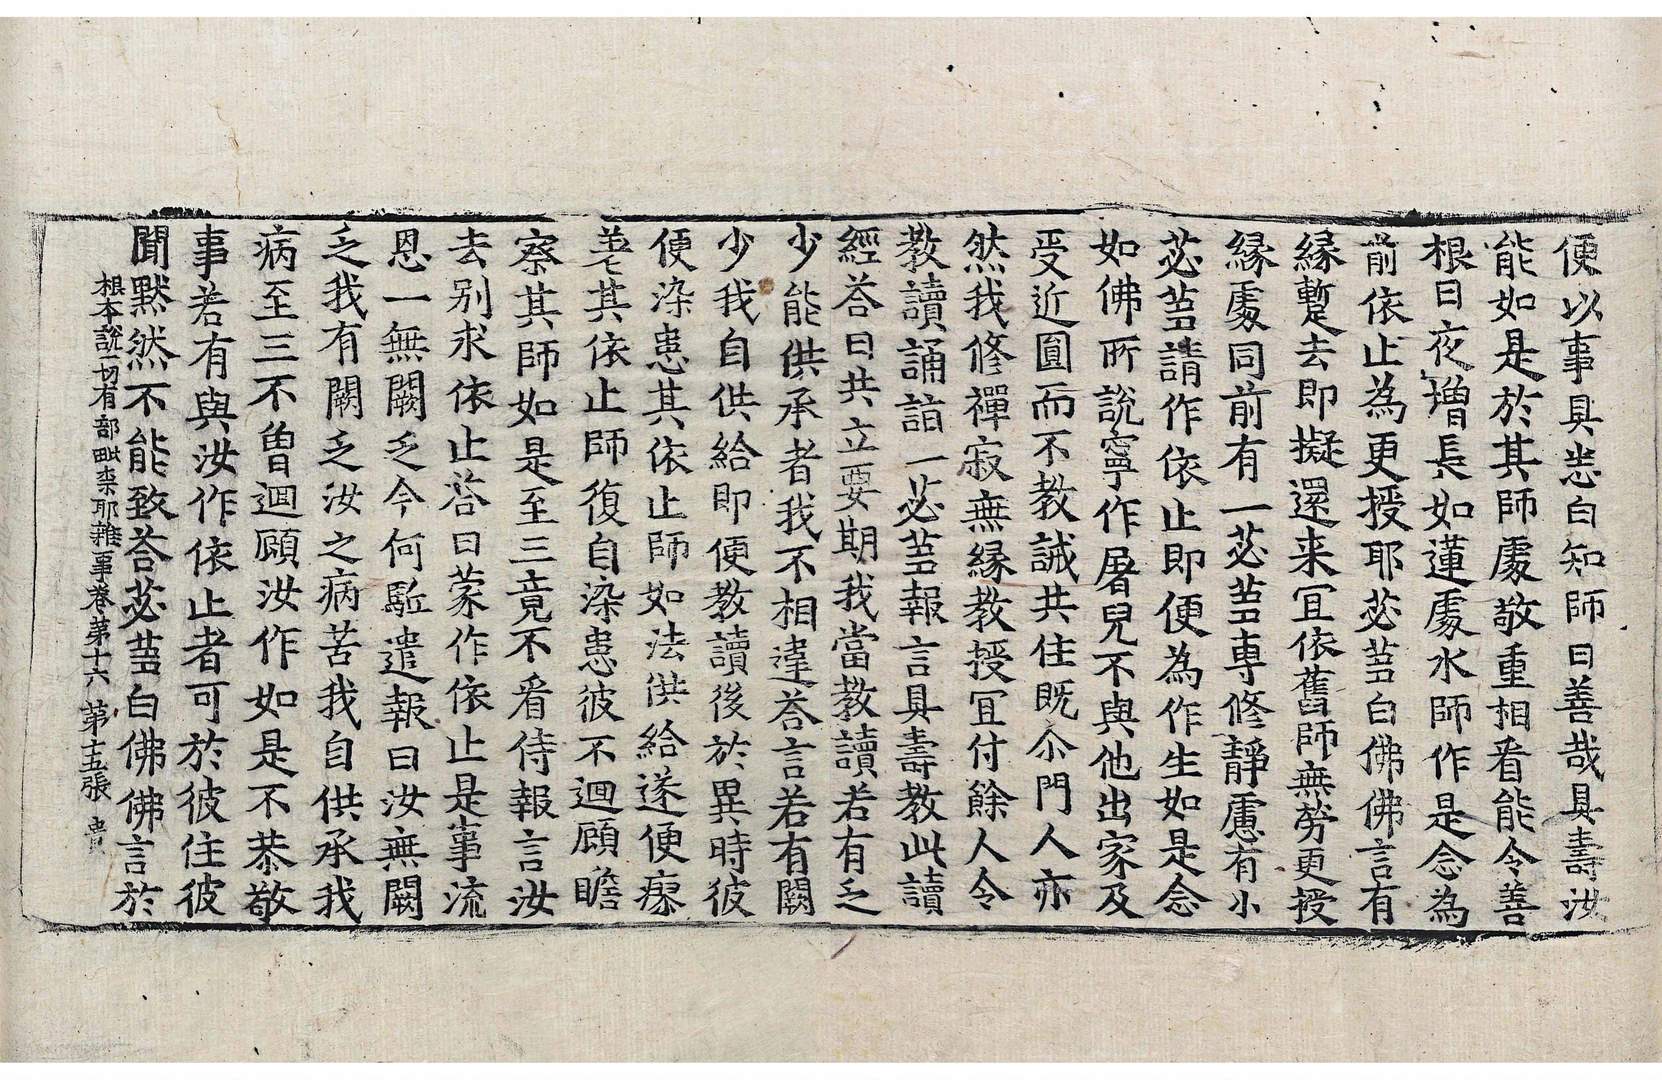 便以事具恙白知師曰善哉具壽汝
能如是於其師處敬重相看能令善
根日夜增長如蓮處水師作是念為
前依止為更授耶苾芻白佛佛言有
緣蹔去即擬還来冝依舊師無勞更授
緣處同前有一苾芻專修靜慮有小
苾芻請作依止即便為作生如是念
如佛所說寧作屠兒不與他出家及
受近圓而不教誡共住既尒門人亦
然我修禪寂無緣教授冝付餘人令
教讀誦詣一苾芻報言具壽教此讀
經荅曰共立要期我當教讀若有乏
少能供承者我不相違荅言若有闕
少我自供給即便教讀後於異時彼
便染患其依止師如法供給遂便瘳
差其依止師復自染患彼不迴顧瞻
察其師如是至三竟不看侍報言汝
去別求依止荅曰蒙作依止是事流
恩一無闕乏今何駈遣報曰汝無闕
乏我有闕乏汝之病苦我自供承我
病至三不曾迴顧汝作如是不恭敬
事若有與汝作依止者可於彼住彼
聞默然不能致荅苾芻白佛佛言於
根本說一切有部毗柰耶雜事卷第十六 第十五張 貴